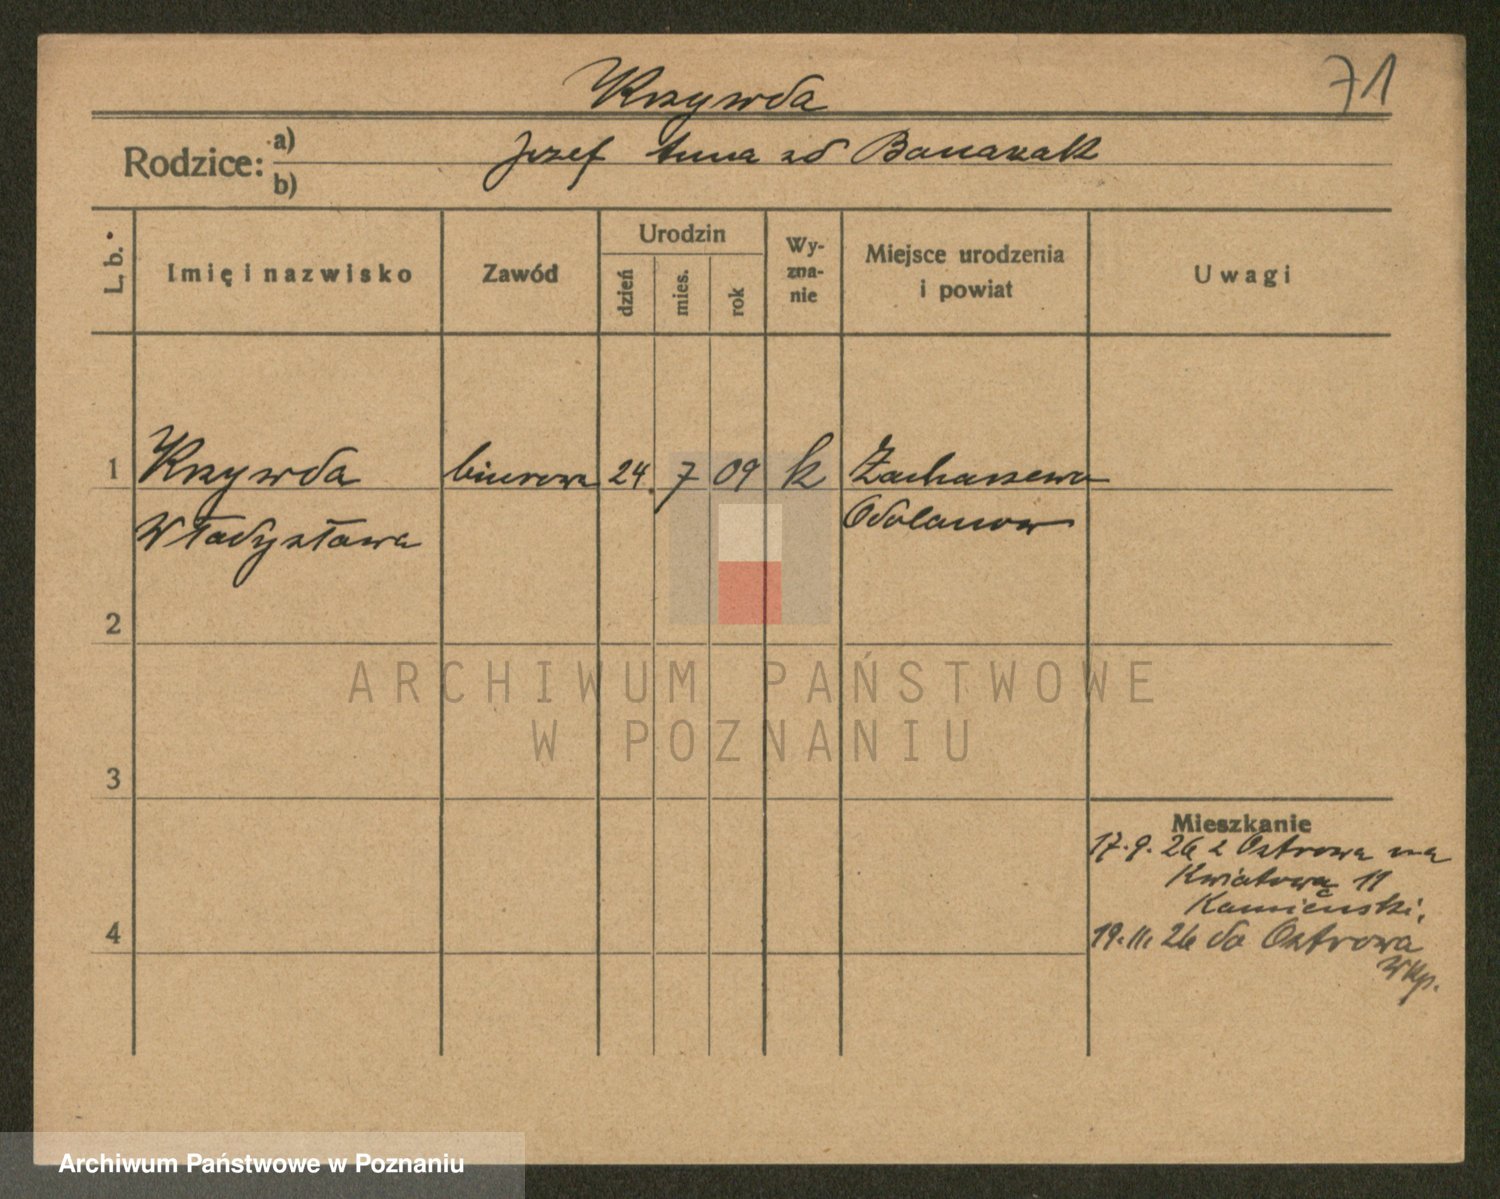 Krzywda
71
Rodzice:
a)
b)
Jozef Anna zd Banaszak
L. b.
Imię i nazwisko
Zawód
Urodzin
dzień
mies.
rok
Wy-
zna-
nie
Miejsce urodzenia
i powiat
Uwagi
1
Krzywda
biurowa
24.
7
09
k
Zacharzewo
Odolanow
Władysława
2
3
4
Mieszkanie
17.9.26 z Ostrowa na
Kwiatową 11
Kamieński.
19.11.26 do Ostrowa
Wlkp.
ARCHIWUM PAŃSTWOWE
W POZNANIU
Archiwum Państwowe w Poznaniu